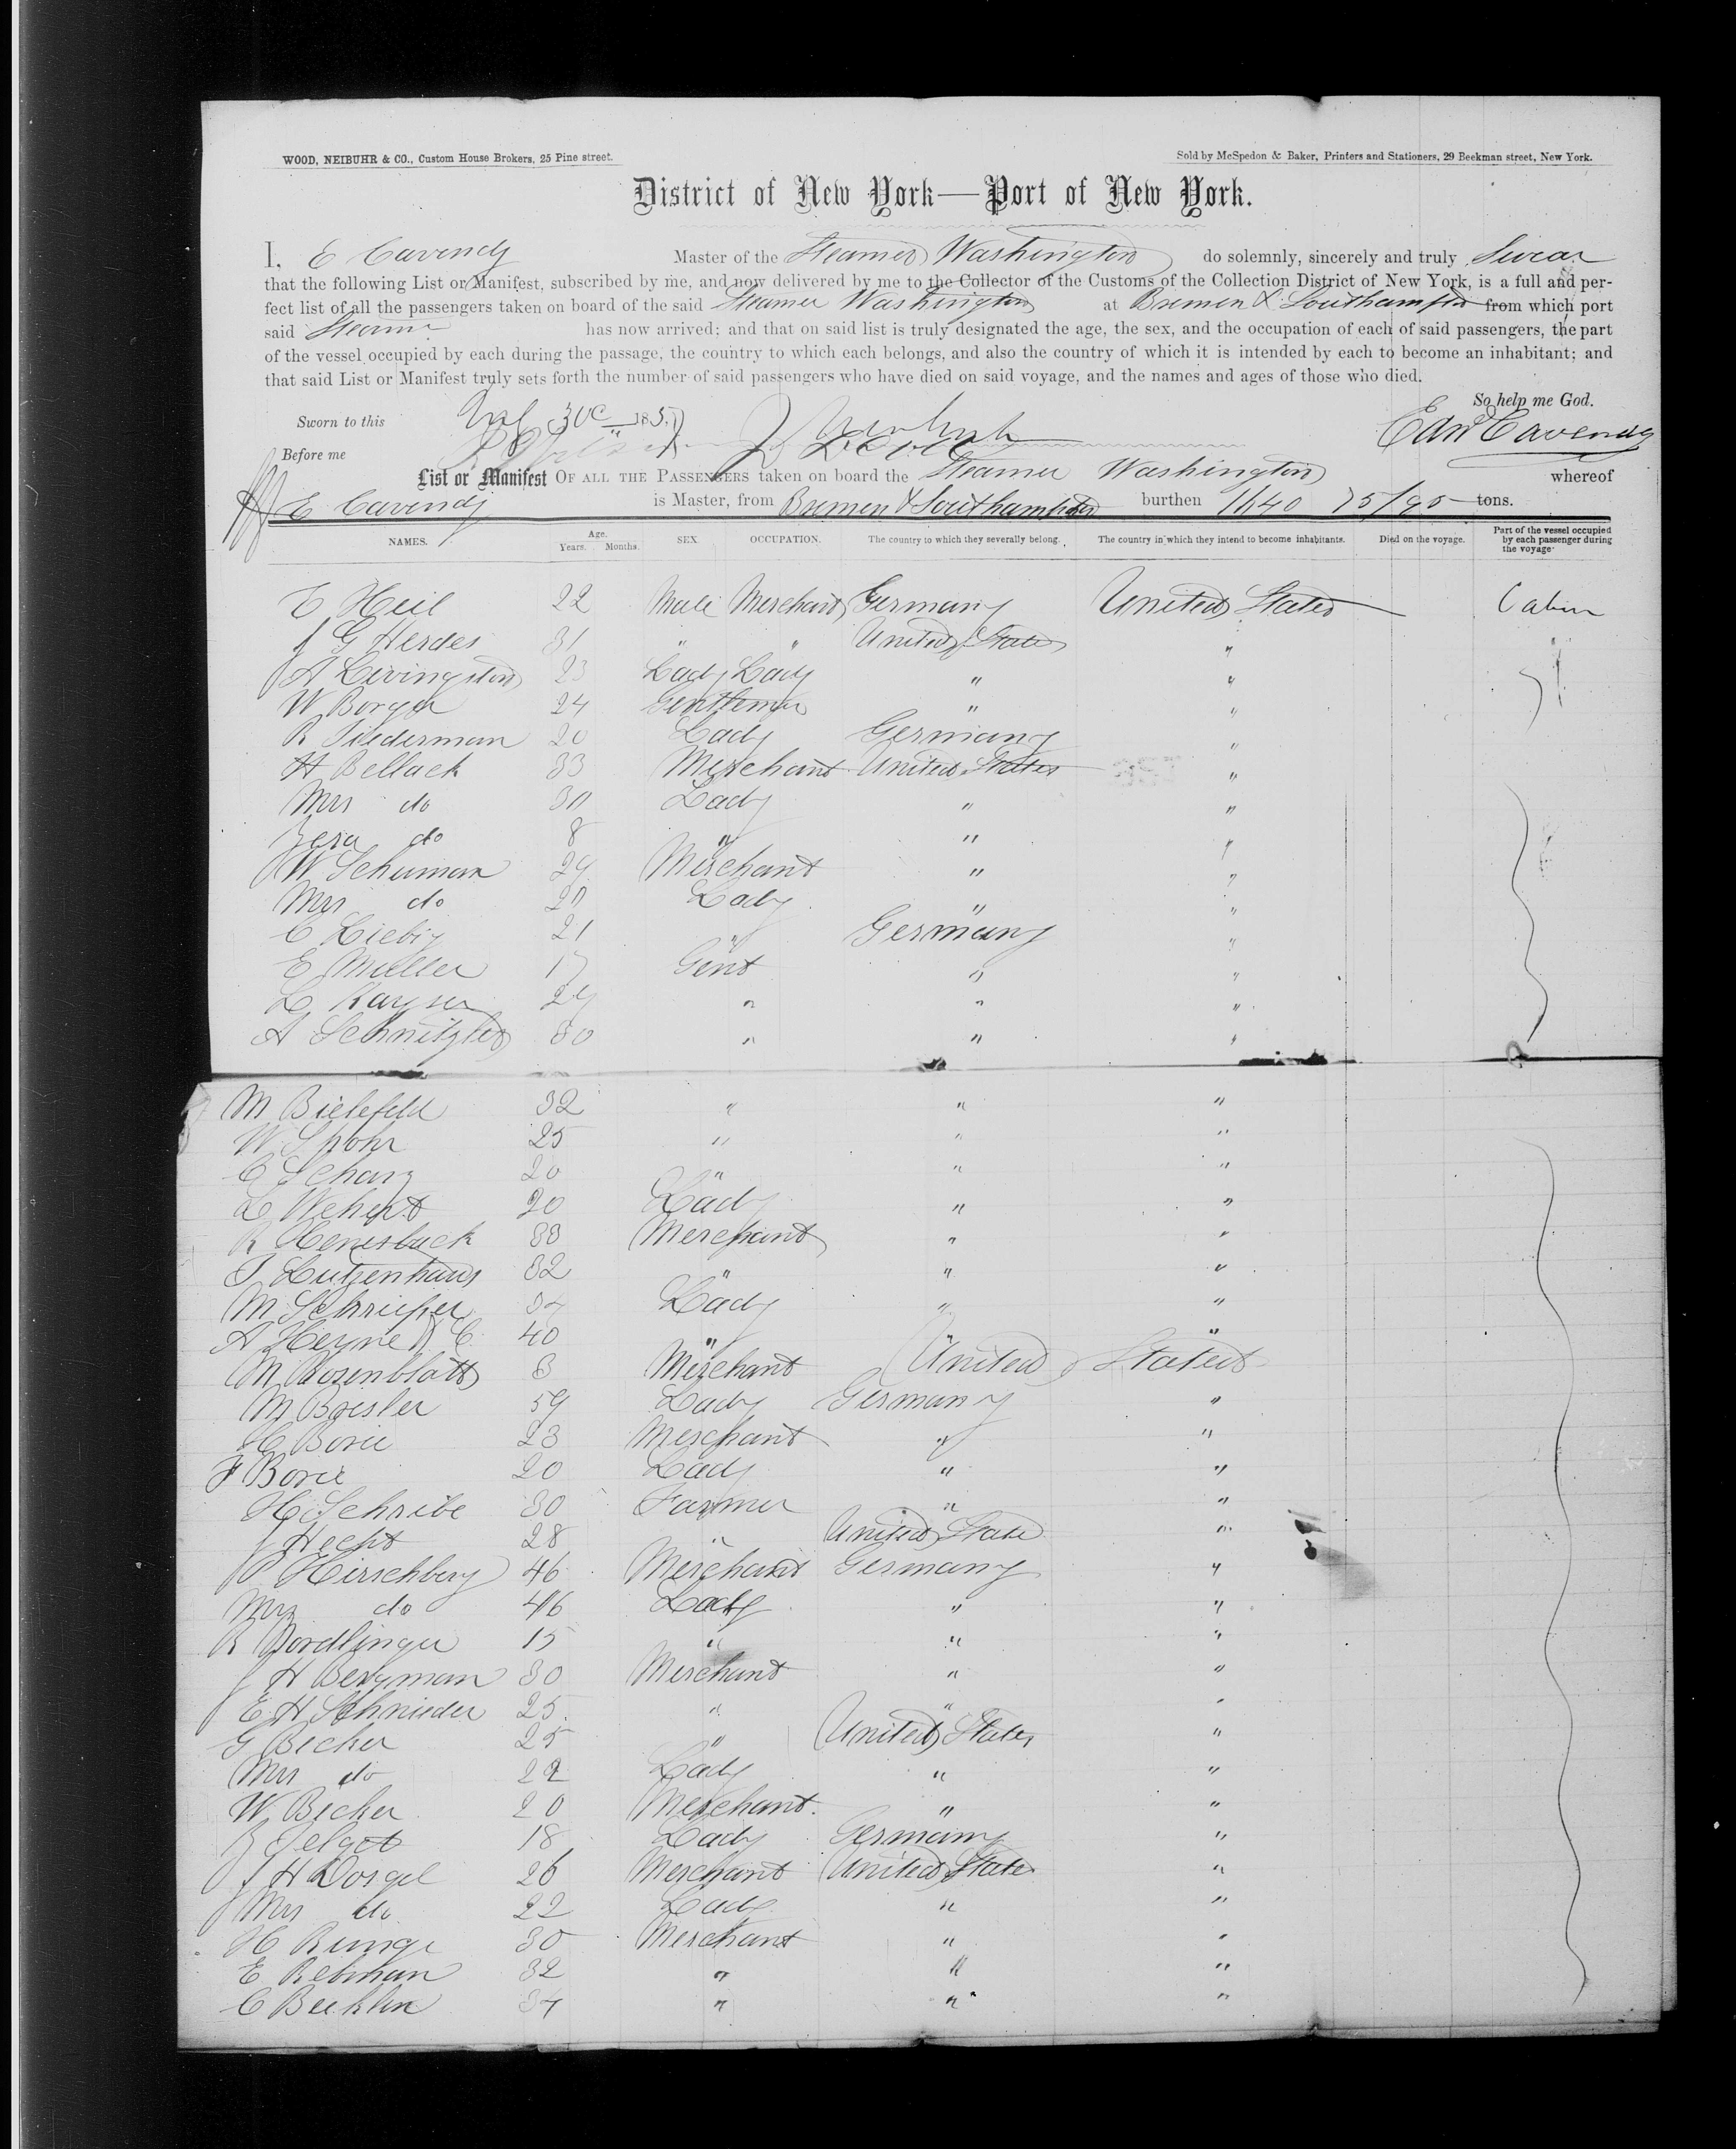 WOOD, NEIBUHR & CO., Custom House Brokers, 25 Pine street.
Sold by McSpedon & Baker, Printers and Stationers, 29 Beekman street, New York.
District of New York—Port of New York.
I, E Cavendy Master of the Steamer Washington do solemnly, sincerely and truly Swear
that the following List or Manifest, subscribed by me, and now delivered by me to the Collector of the Customs of the Collection District of New York, is a full and per-
fect list of all the passengers taken on board of the said Steamer Washington at Bremen & Southampton from which port
said Steamer has now arrived; and that on said list is truly designated the age, the sex, and the occupation of each of said passengers, the part
of the vessel occupied by each during the passage, the country to which each belongs, and also the country of which it is intended by each to become an inhabitant; and
that said List or Manifest truly sets forth the number of said passengers who have died on said voyage, and the names and ages of those who died.
So help me God.
Sworn to this 185
Edw Cavendy
Before me
List or Manifest OF ALL THE PASSENGERS taken on board the Steamer Washington whereof
E Cavendy is Master, from Bremen & Southampton burthen 1640 75/95 tons.
NAMES. Age. Years. Months. SEX OCCUPATION. The country to which they severally belong. The country in which they intend to become inhabitants. Died on the voyage. Part of the vessel occupied by each passenger during the voyage
E Heil 22 Male Merchant Germany United States Cabin
J G Herdes 31 " " United States "
A Livingston 23 Lady Lady " "
W Borger 24 Gentleman " "
R Siederman 20 Lady Germany "
H Bellack 33 Merchant United States "
Mrs do 30 Lady " "
do 8 " " "
W Schuman 29 Merchant " "
Mrs do 20 Lady " "
C Liebig 21 " Germany "
E Muller 17 Gent " "
L Kayser 29 " " "
A Schnitzler 30 " " "
M Bielefeld 32 " " "
W Spohr 25 " " "
C Scharz 20 " " "
L Wehert 20 Lady " "
R Henesbuck 33 Merchant " "
J Lutzenhaus 32 " " "
M Schriefer 34 Lady " "
A Heyne & C 40 " " "
M Rosenblatt 3 Merchant United States
M Brisler 59 Lady Germany "
H Borie 23 Merchant " "
F Borie 20 Lady " "
H Schribe 30 Farmer " "
J Hecht 28 " United State "
P Hirschberg 46 Merchant Germany "
Mrs do 46 Lady " "
R Nordlinger 15 " " "
J H Bergman 30 Merchant " "
E H Schnieder 25 " " "
G Becker 25 " United States "
Mrs do 22 Lady " "
W Becker 20 Merchant " "
18 Lady Germany "
J H Dosgel 26 Merchant United States "
Mrs do 22 Lady " "
H Runge 30 Merchant " "
E Rebman 32 " " "
C Beeklin 34 " " "